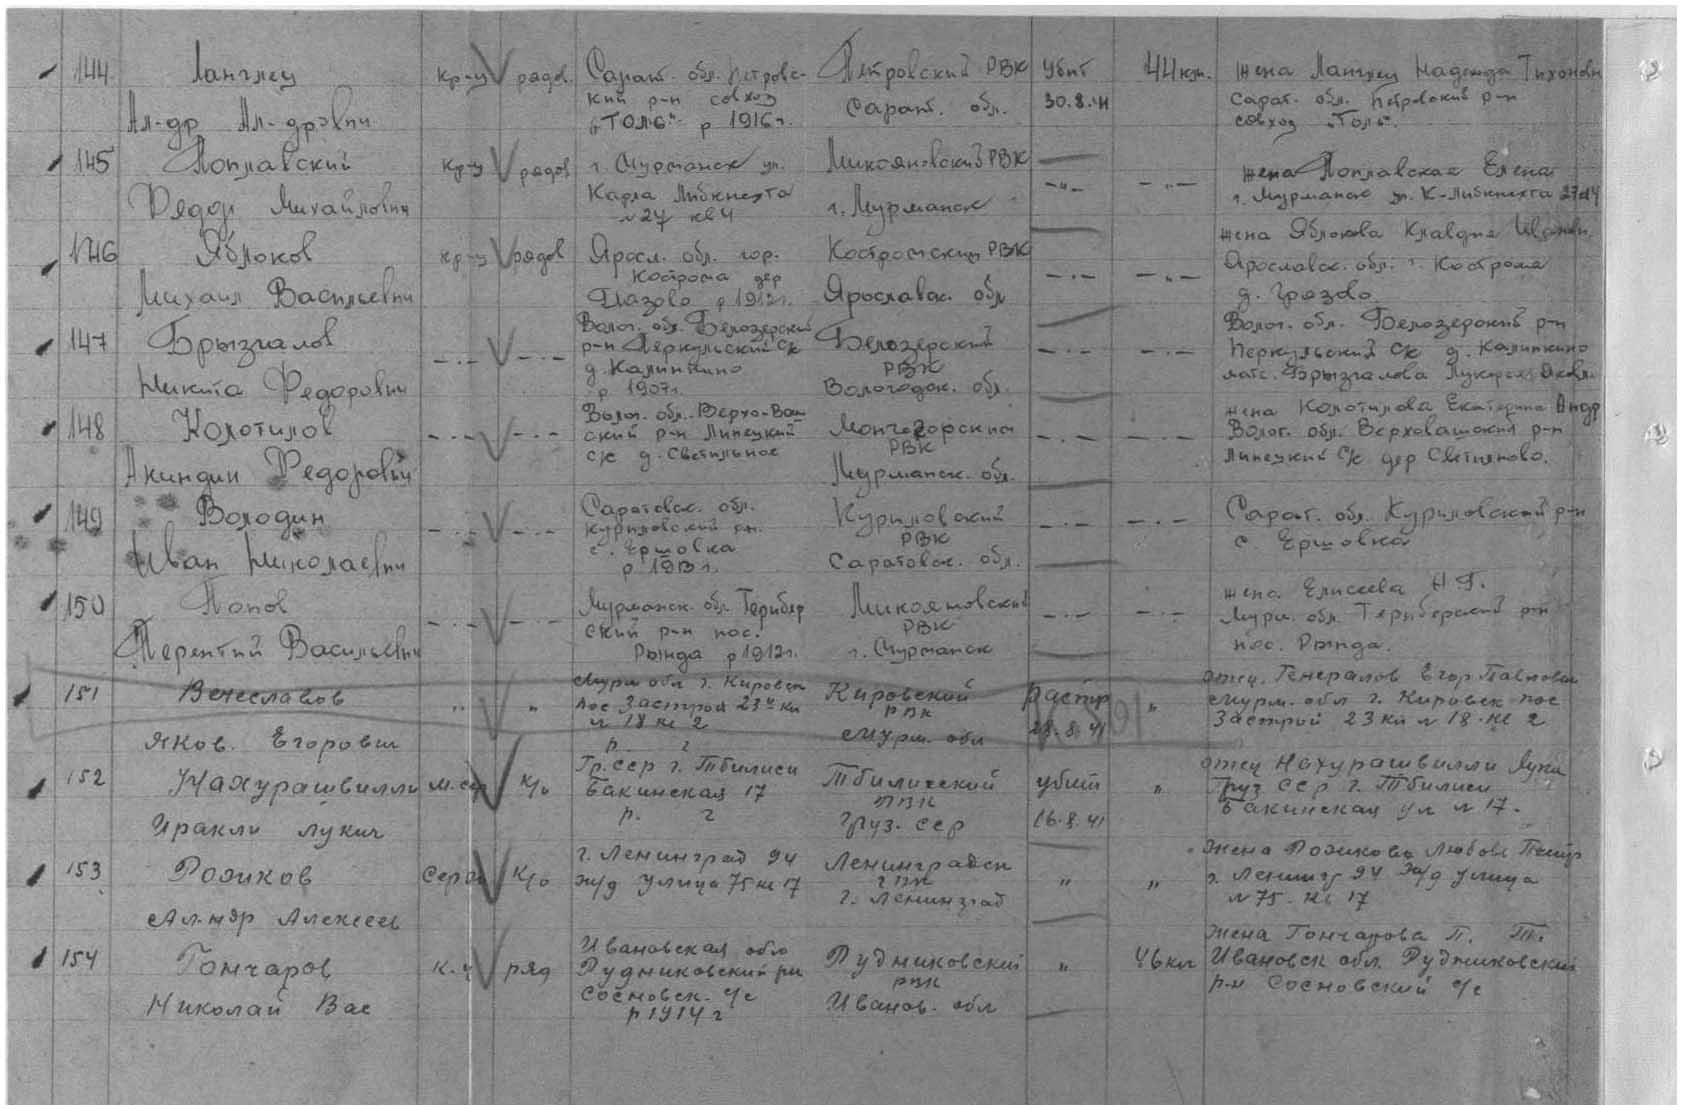 144 Ланглец кр-ц рядов. Сарат. обл. Петровс- Петровский РВК убит 44 км. жена Ланглец Надежда Тихоновн
Ал-др Ал-дрович кий р-н совхоз Сарат. обл. 30.8.41 Сарат. обл. Петровский р-н
р 1916 г. совхоз
145 Поплавский кр-ц рядов г. Мурманск ул. Микояновский РВК -"- -"- жена Поплавская Елена
Федор Михайлович Карла Либкнехта г. Мурманск г. Мурманск ул. К-Либкнехта 27-4
№ 27 кв 4
146 Яблоков кр-ц рядов Яросл. обл. гор. Костромский РВК -"- -"- жена Яблокова Клавдия Иванов.
Михаил Васильевич Кострома дер Ярославск. обл Ярославск. обл. г. Кострома
р 1912 г. д.
147 Брызгалов -"- -"- Волог. обл. Белозерский Белозерский -"- -"- Волог. обл. Белозерский р-н
Никита Федорович р-н Перкульский с/с РВК Перкульский с/с д. Калинкино
д. Калинкино Вологодск. обл. мать. Брызгалова
р 1907 г.
148 Колотилов -"- -"- Волог. обл. Верхо-Ваш Мончегорский -"- -"- жена Колотилова Екатерина Андр
Акиндин Федорович ский р-н Липецкий РВК Волог. обл. Верховашский р-н
с/с д. Светильное Мурманск. обл. Липецкий с/с дер
149 Володин -"- -"- Саратовск. обл. Куриловский -"- -"- Сарат. обл. Куриловский р-н
Иван Николаевич Куриловский р-н. РВК с. Ершовка
с. Ершовка Саратовск. обл.
р 1913 г.
150 Попов -"- -"- Мурманск. обл. Терибер Микояновский -"- -"- жена Елисеева
Терентий Васильевич ский р-н пос. РВК Мурм. обл. Териберский р-н
Рында р 1912 г. г. Мурманск пос. Рында.
151 Венеславов " " Мурм обл г. Кировск Кировский расстр " отец. Генералов Егор Павлович
Яков. Егорович пос Застрой 23й км РВК 28.8.41 Мурм. обл г. Кировск пос
№ 18 кв 2 Мурм. обл Застрой 23 км № 18 кв 2
р. г
152 Нахурашвилли м. сер к/о Гр. ССР г. Тбилиси Тбилисский убит " отец Нахурашвилли Лука
Иракли Лукич Бакинская 17 РВК 16.8.41 Груз ССР г. Тбилиси
р. г Груз. ССР Бакинская ул № 17.
153 Розиков к/о г. Ленинград 94 Ленинградск " " жена Розикова Любовь Петр
Ал-ндр Алексеев ж/д улица 75 кв 17 г. Ленинград г. Ленингр 94 ж/д улица
№ 75 кв 17
154 Гончаров к-ц ряд Ивановская обл Рудниковский " 46 км жена Гончарова П.
Николай Вас Рудниковский р-н РВК Ивановск обл. Рудниковский
Сосновск. с/с Иванов. обл р-н Сосновский с/с
р 1914 г